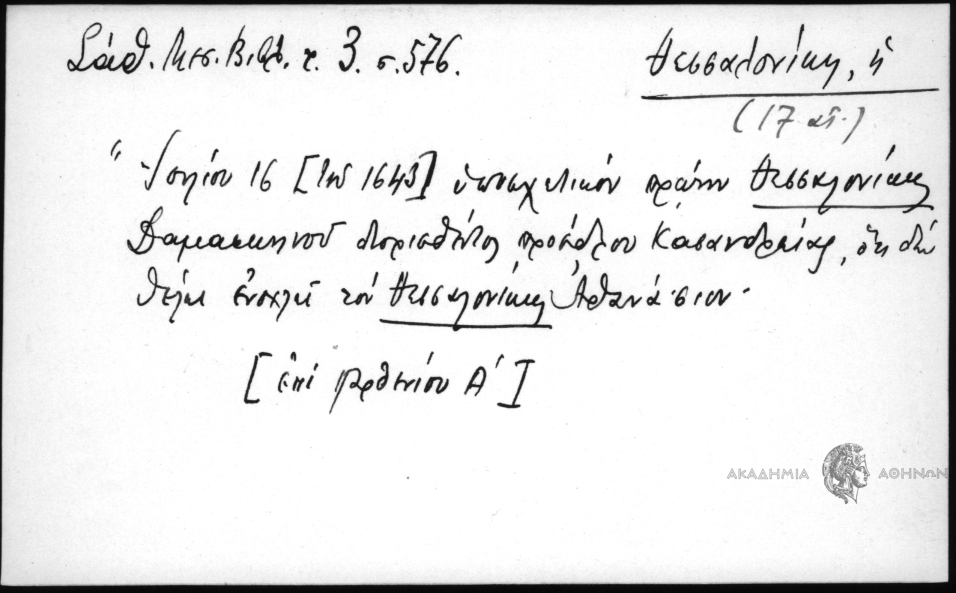 Σάθ. Μεσ. Βιβλ. τ. 3. σ. 576.
Θεσσαλονίκη, ἡ
(17 αἰ.)
"Ἰουλίου 16 [τοῦ 1643] ὑποσχετικὸν πρώην Θεσσαλονίκης
Δαμασκηνοῦ διορισθέντος προέδρου Κασανδρείας, ὅτι δὲν
θέλει ἐνοχλεῖ τὸν Θεσσαλονίκης Ἀθανάσιον.
[ἐπὶ Παρθενίου Α΄]
ΑΚΑΔΗΜΙΑ ΑΘΗΝΩΝ